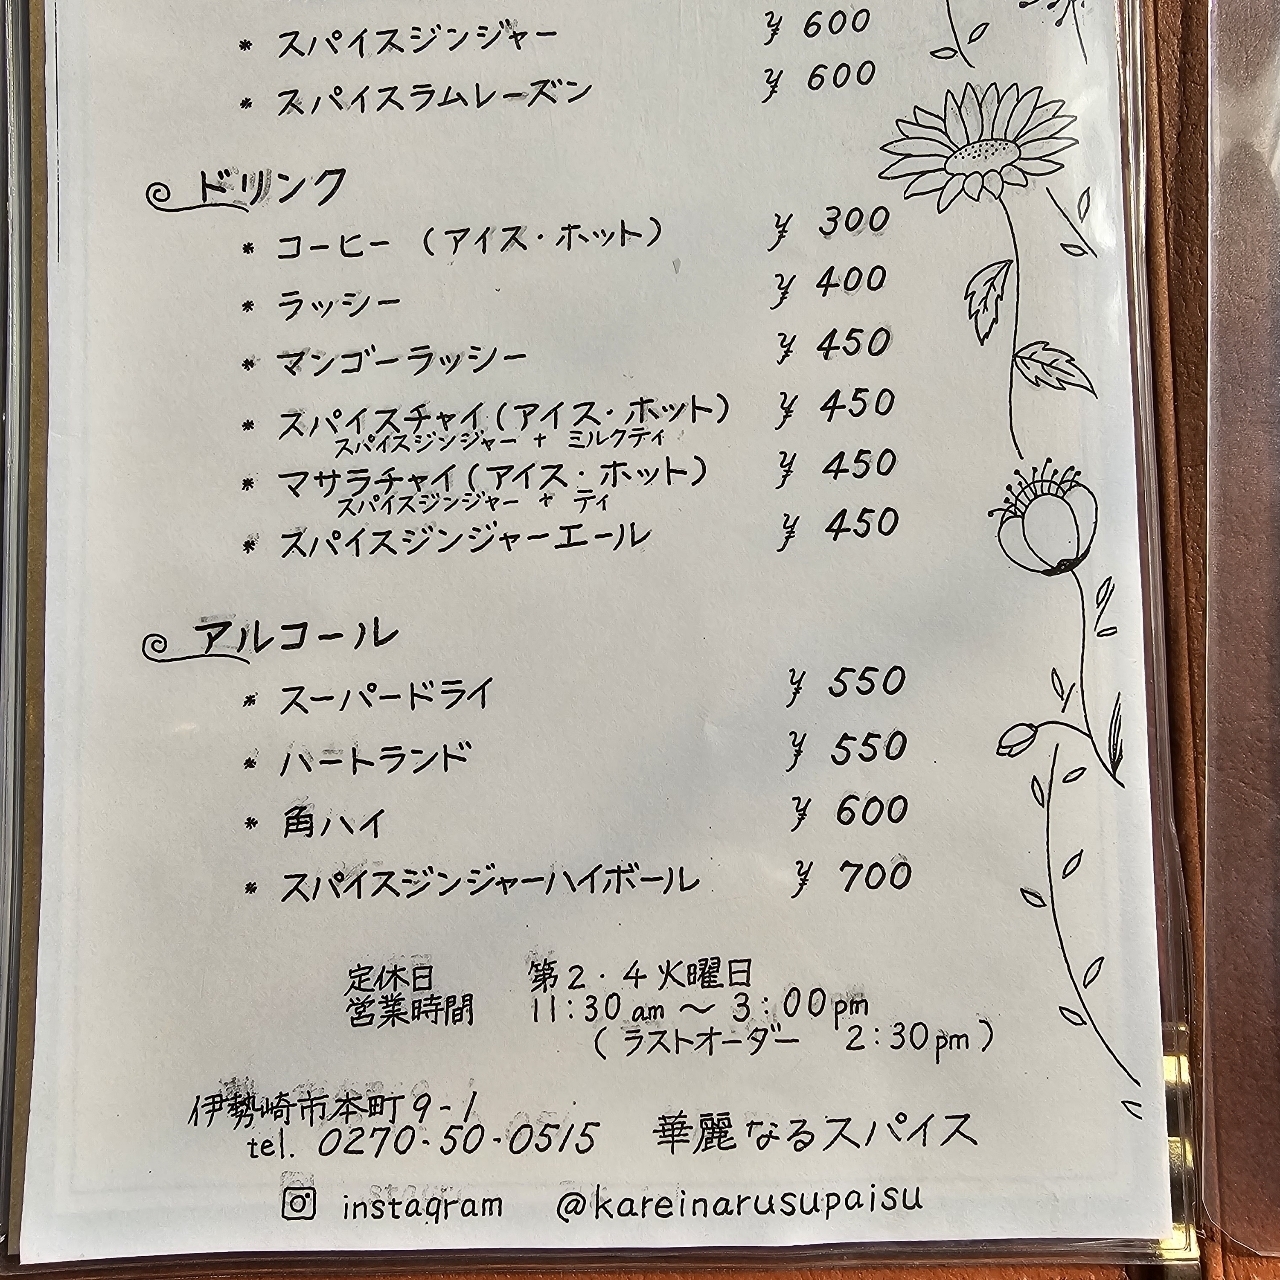 * スパイスジンジャー ¥600
* スパイスラムレーズン ¥600
ドリンク
* コーヒー （アイス・ホット） ¥300
* ラッシー ¥400
* マンゴーラッシー ¥450
* スパイスチャイ（アイス・ホット） ¥450
スパイスジンジャー + ミルクティ
* マサラチャイ（アイス・ホット） ¥450
スパイスジンジャー + ティ
* スパイスジンジャーエール ¥450
アルコール
* スーパードライ ¥550
* ハートランド ¥550
* 角ハイ ¥600
* スパイスジンジャーハイボール ¥700
定休日 第2・4火曜日
営業時間 11:30am～3:00pm
（ラストオーダー 2:30pm）
伊勢崎市本町9-1
tel. 0270-50-0515 華麗なるスパイス
instagram @kareinarusupaisu